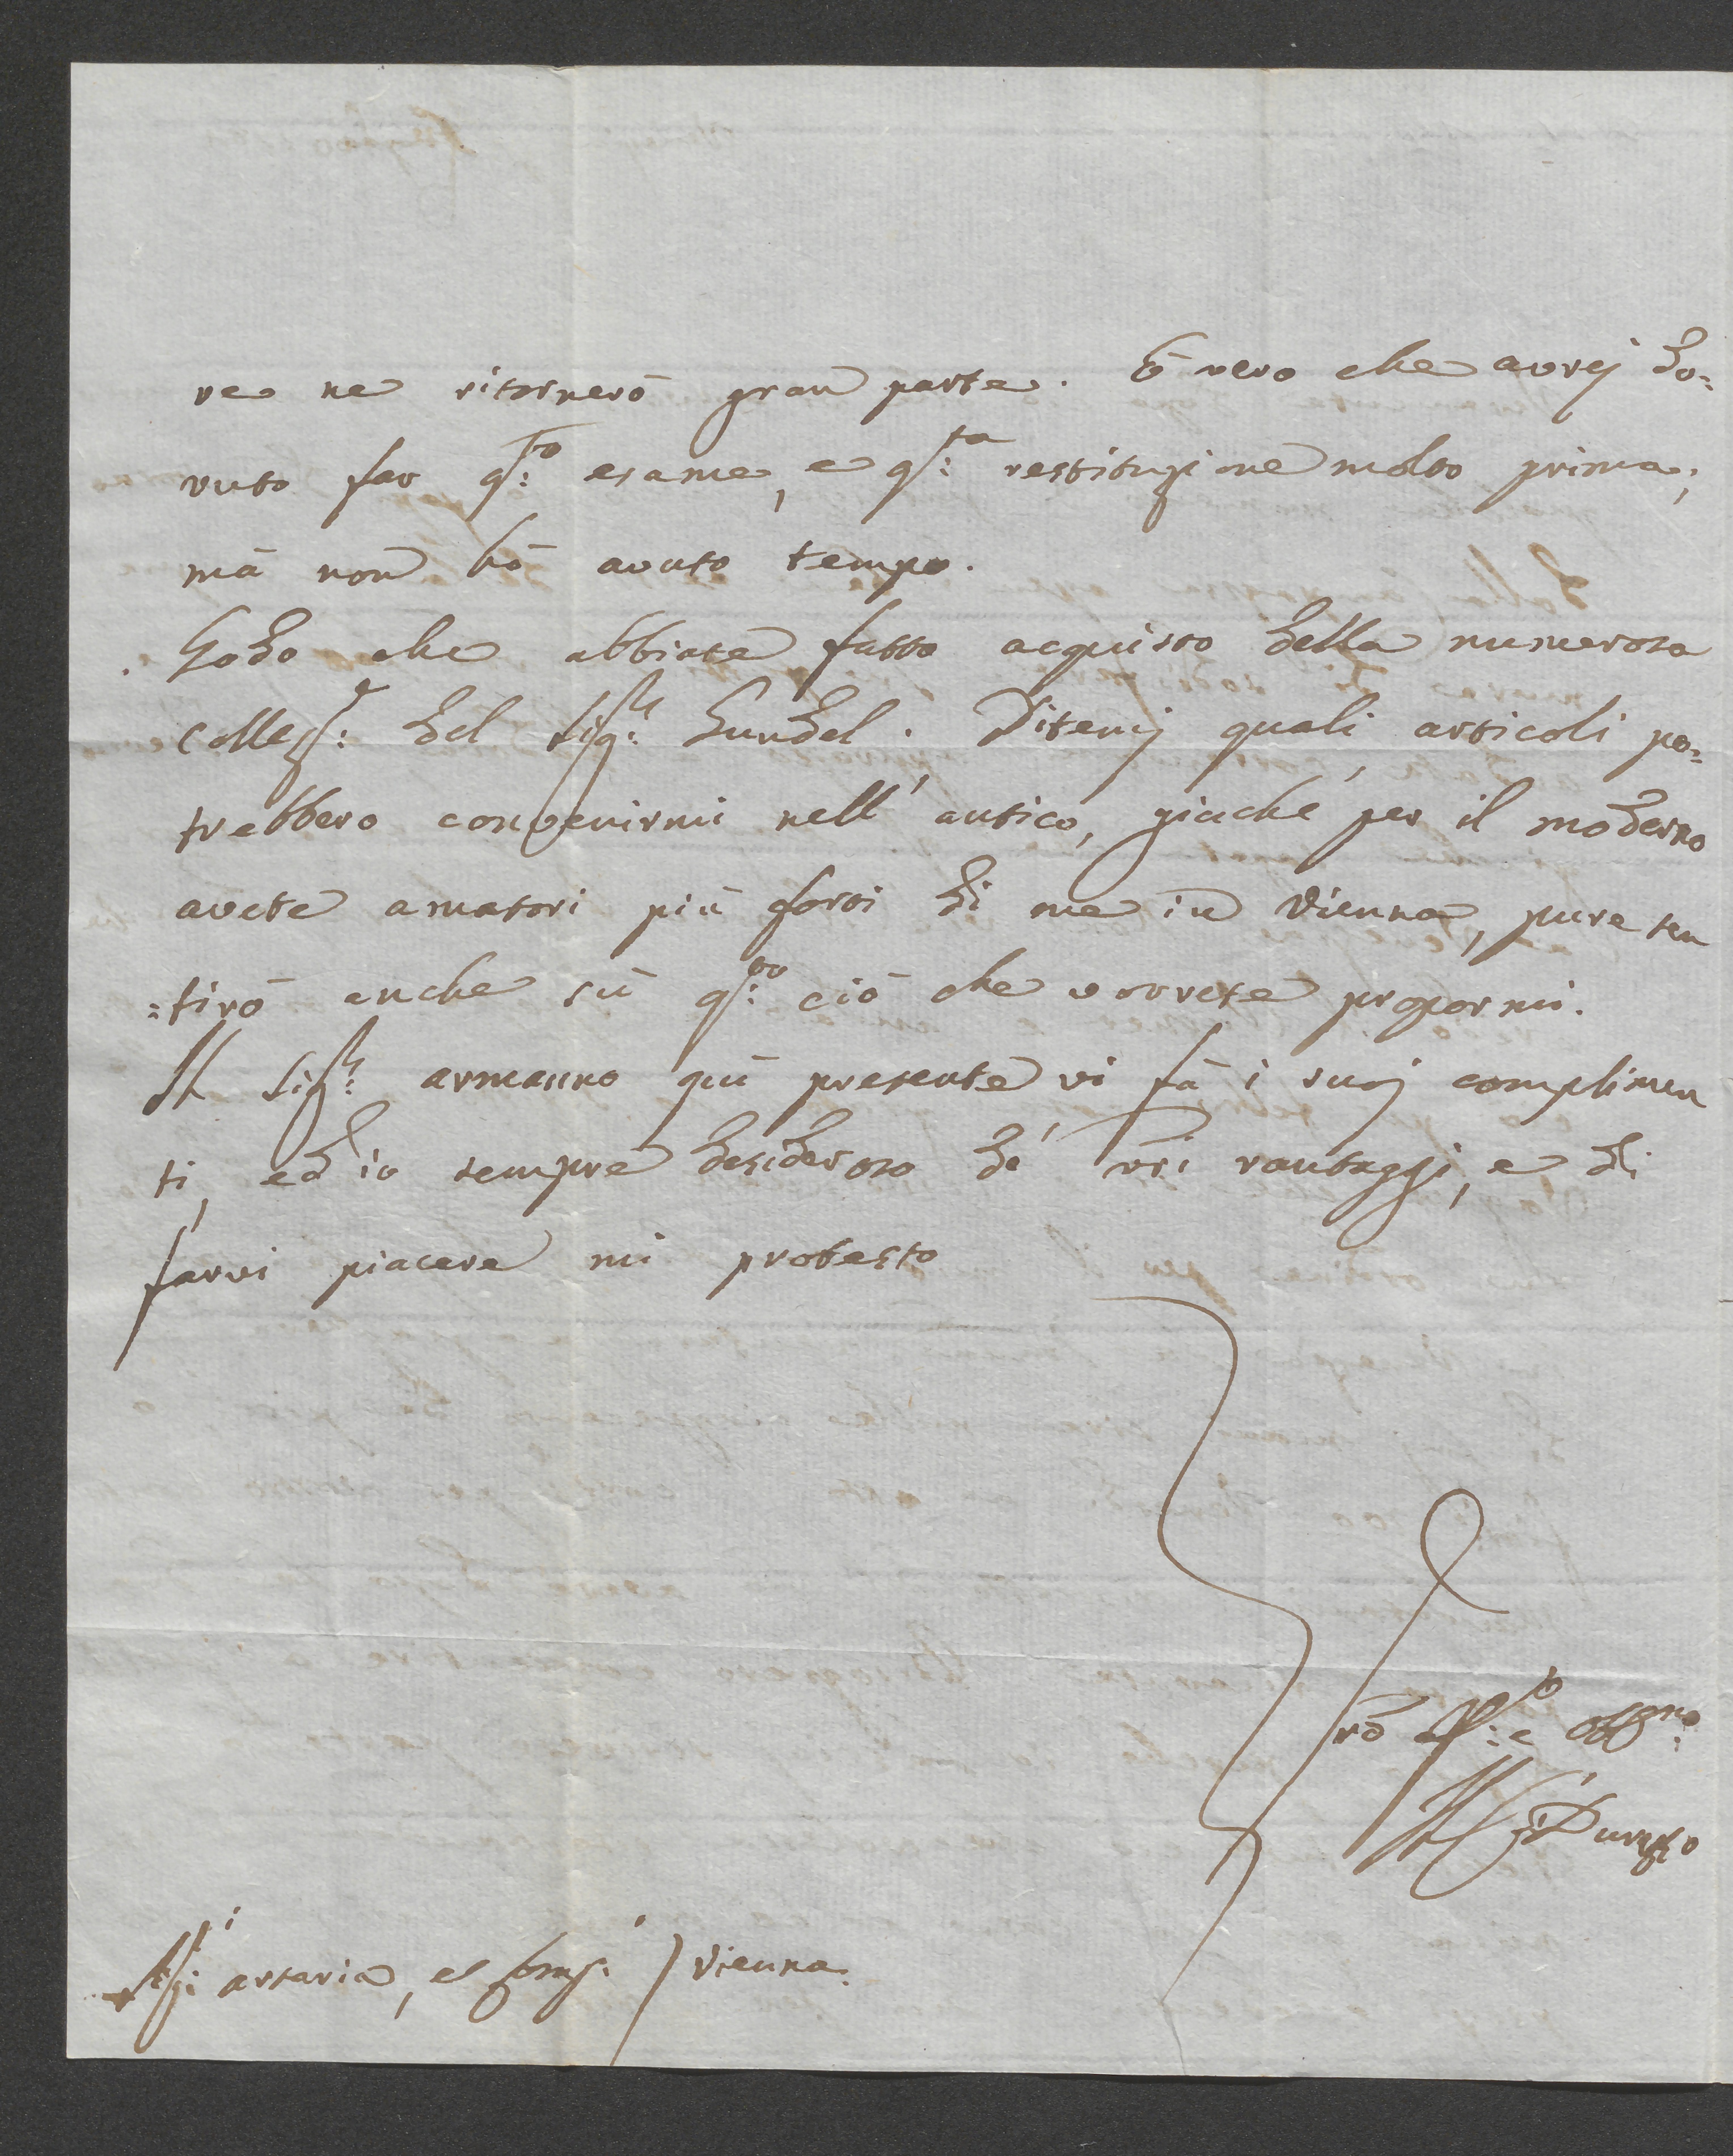 re ne ritornerò gran parte. È vero che avrej do=
vuto far q.to esame, e q.ta restituzione molto prima;
mà non hò avuto tempo.
Godo che abbiate fatto acquisto della numerosa
collez.e del Sig.r Gundel. Ditemj quali articoli po=
trebbero convenirmi nell' antico, giachè per il moderno
avete amatori più forti di me in Vienna, pure sen
=tirò anche sù q.to ciò che vorrete propormi.
Il Sig.r Armanno quì presente vi fà i suoj complimen
ti, ed io sempre desideroso de' vri vantaggi, e di
farvi piacere mi protesto
vro aff.o e obb.mo
Durazzo
Sig.i Artaria, et Comp.i / Vienna.